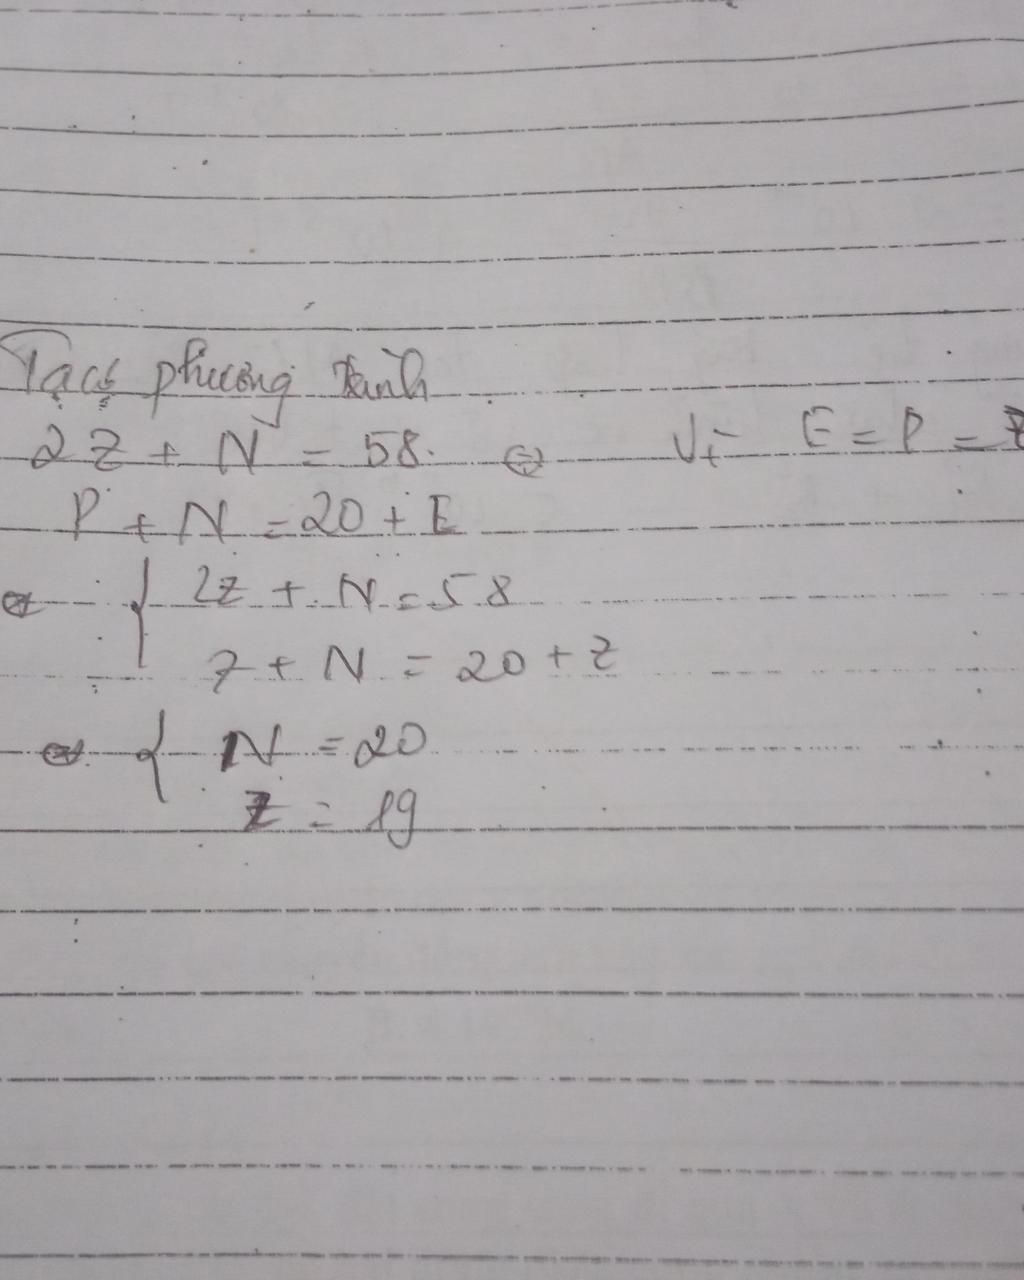 Ta có phương trình
2Z + N = 58. ⇔ Vì E = P = Z
P + N = 20 + E
⇔ { 2Z + N = 58
Z + N = 20 + Z
⇔ { N = 20
Z = 19